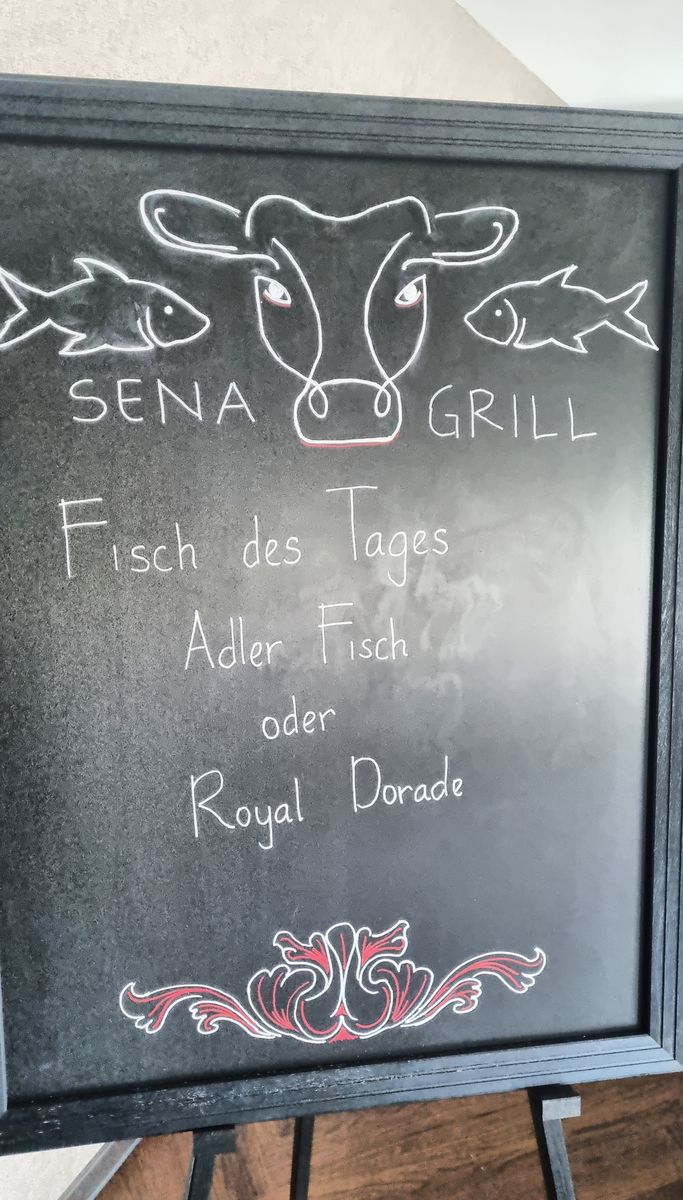 SENA GRILL
Fisch des Tages
Adler Fisch
oder
Royal Dorade